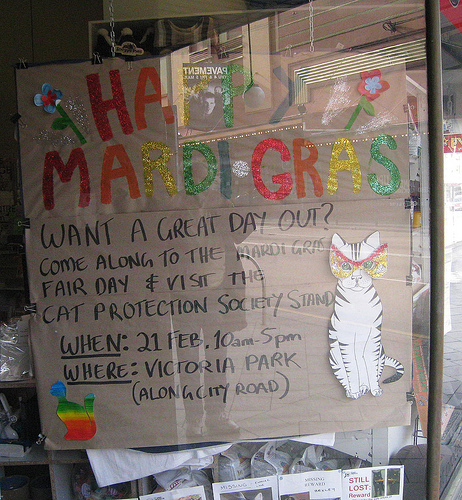 HAPPY
PAVEMENT
MARDI-GRAS
WANT A GREAT DAY OUT?
COME ALONG TO THE MARDI GRAS
FAIR DAY & VISIT THE
CAT PROTECTION SOCIETY STAND
WHEN: 21 FEB. 10am-5pm
WHERE: VICTORIA PARK
(ALONG CITY ROAD)
MISSING
MISSING
REWARD
STILL
LOST:
Reward